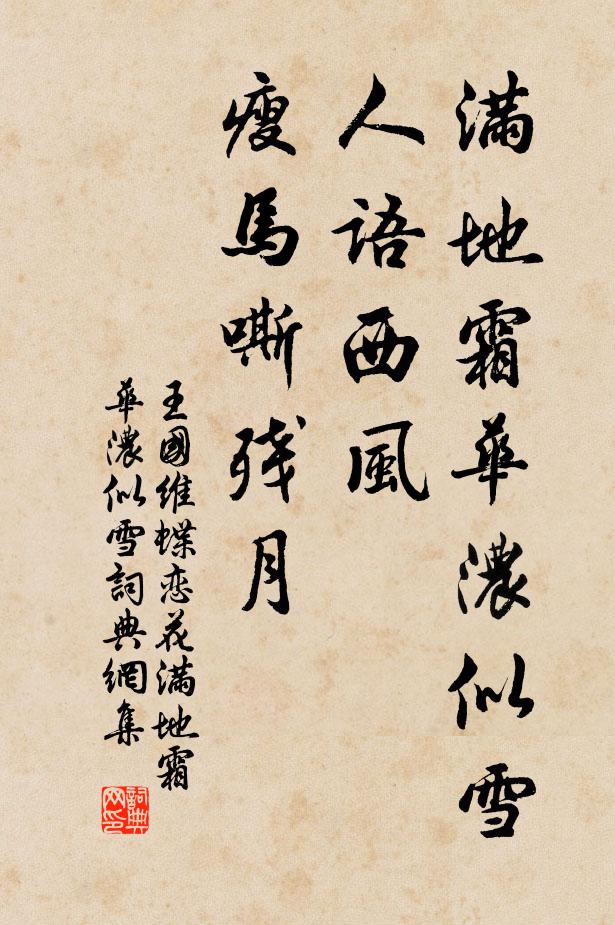 滿地霜華濃似雪
人語西風
瘦馬嘶残月
王國維蝶恋花滿地霜
華濃似雪詞典網集
詞典
网印